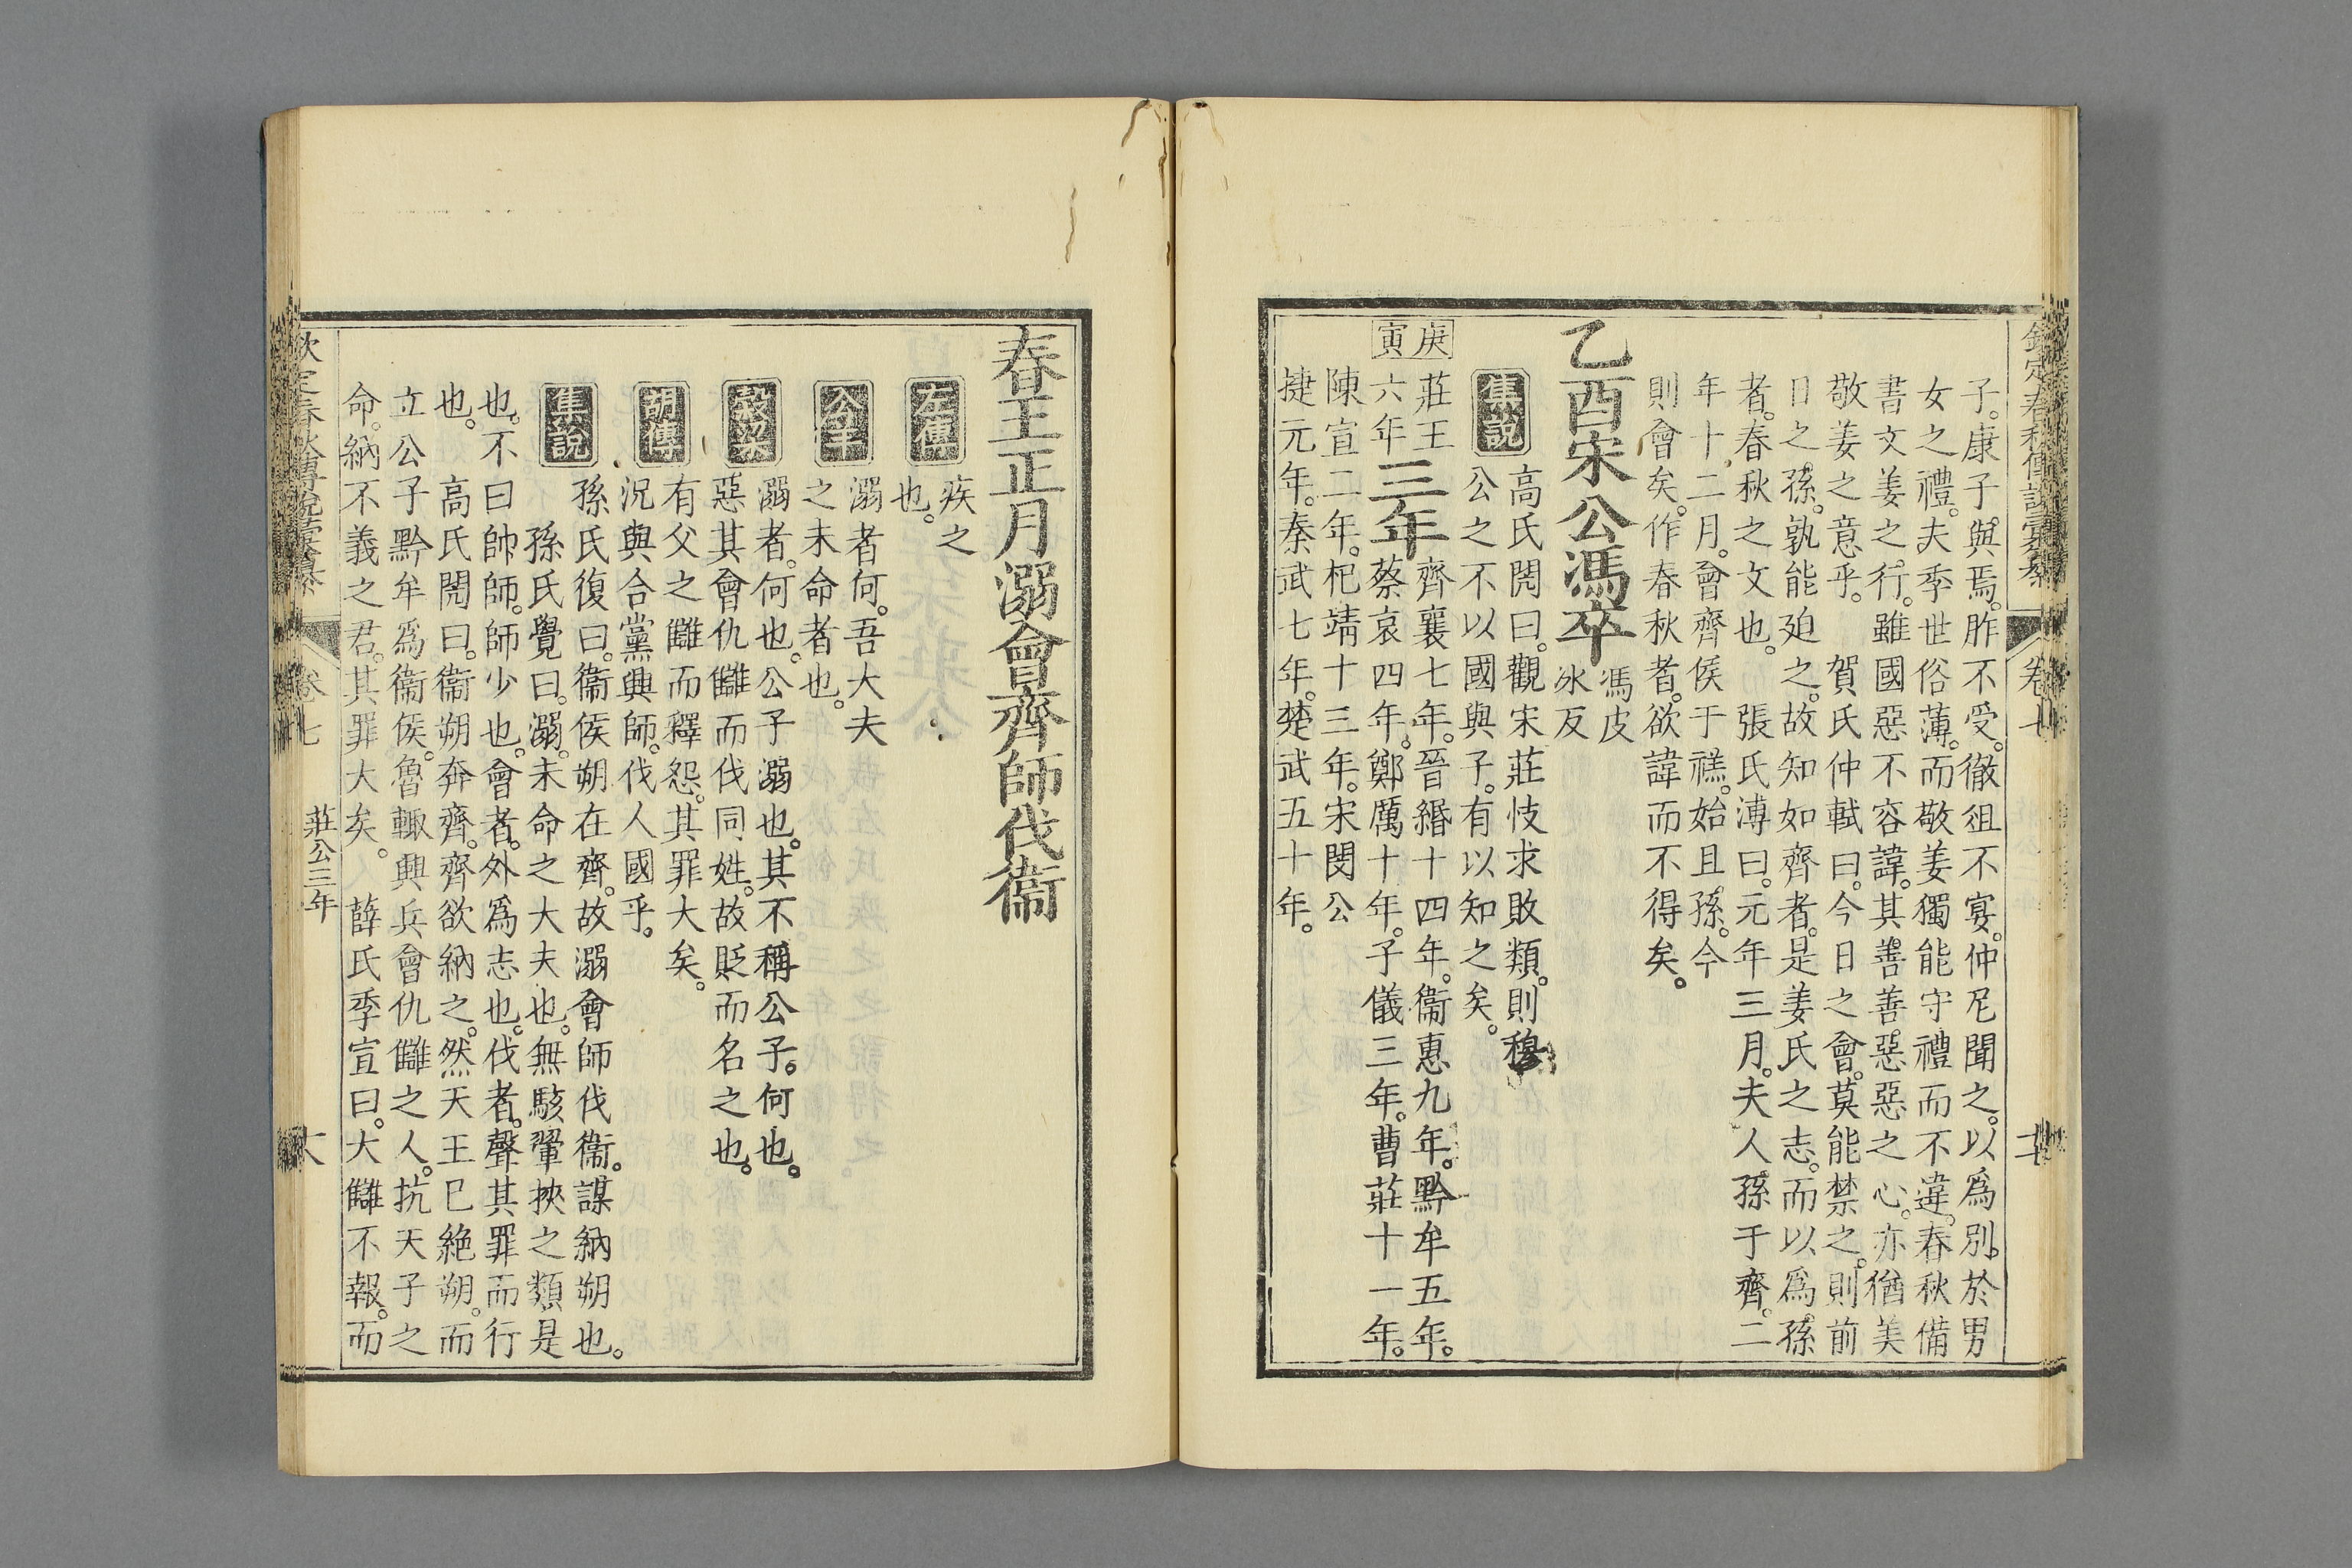 欽定春秋傳說彙纂 卷七
子。康子與焉。胙不受。徹俎不宴。仲尼聞之。以爲別於男
女之禮。夫季世俗薄。而敬姜獨能守禮而不違。春秋備
書文姜之行。雖國惡不容諱。其善善惡惡之心。亦猶美
敬姜之意乎。 賀氏仲軾曰。今日之會。莫能禁之。則前
日之孫。孰能廹之。故知如齊者。是姜氏之志。而以爲孫
者。春秋之文也。 張氏溥曰。元年三月。夫人孫于齊。二
年十二月。會齊侯于禚。始且孫。今
則會矣。作春秋者。欲諱而不得矣。
乙酉宋公馮卒
馮皮
冰反
集說
高氏閌曰。觀宋莊忮求敗類。則穆
公之不以國與子。有以知之矣。
庚寅
莊王
六年
三年
齊襄七年。晉緡十四年。衞惠九年。黔牟五年。
蔡哀四年。鄭厲十年。子儀三年。曹莊十一年。
陳宣二年。杞靖十三年。宋閔公
捷元年。秦武七年。楚武五十年。
春王正月溺會齊師伐衞
左傳
疾之
也。
公羊
溺者何。吾大夫
之未命者也。
穀梁
溺者。何也。公子溺也。其不稱公子。何也。
惡其會仇讎而伐同姓。故貶而名之也。
胡傳
有父之讎而釋怨。其罪大矣。
況與合黨興師。伐人國乎。
集說
孫氏復曰。衞侯朔在齊。故溺會師伐衞。謀納朔也。
孫氏覺曰。溺。未命之大夫也。無駭翬挾之類是
也。不曰帥師。師少也。會者。外爲志也。伐者。聲其罪而行
也。 高氏閌曰。衞朔奔齊。齊欲納之。然天王巳絶朔。而
立公子黔牟爲衞侯。魯輒興兵會仇讎之人。抗天子之
命。納不義之君。其罪大矣。 薛氏季宣曰。大讎不報。而
欽定春秋傳說彙纂 卷七 莊公三年